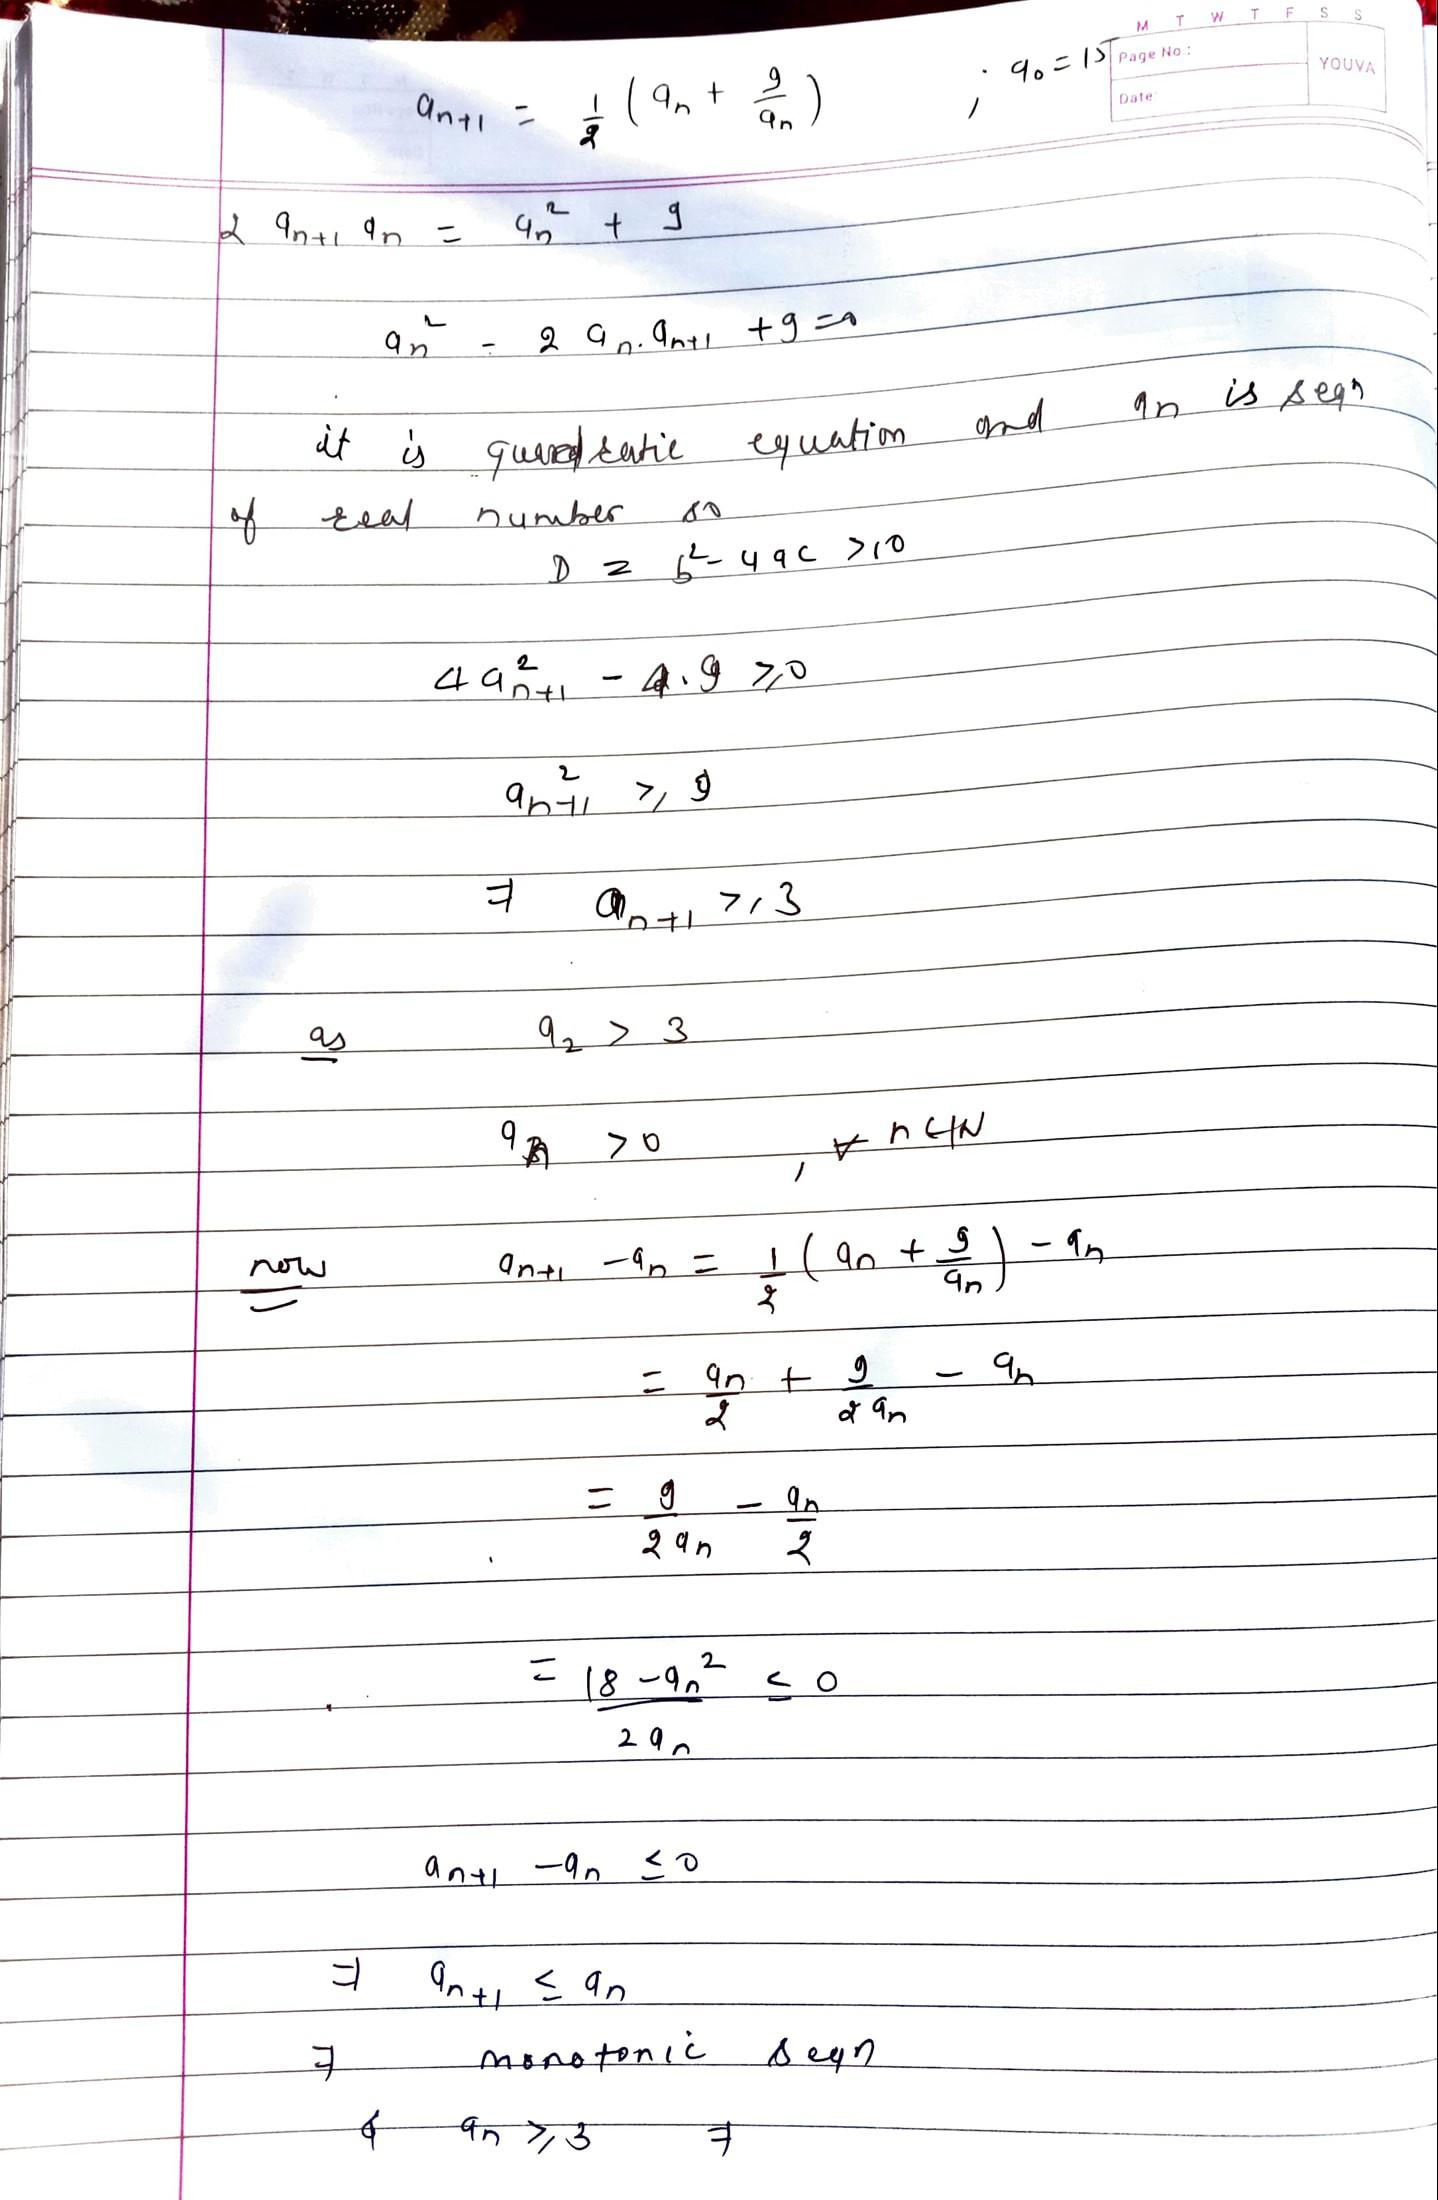 M T W T F S S
Page No :
YOUVA
Date:
a_{n+1} = 1/2 (a_n + 9/a_n) ; a_0 = 15
2 a_{n+1} a_n = a_n^2 + 9
a_n^2 - 2 a_n . a_{n+1} + 9 = 0
it is quadratic equation and a_n is seqn
of real number so
D = b^2 - 4ac ≥ 0
4 a_{n+1}^2 - 4.9 ≥ 0
a_{n+1}^2 ≥ 9
⇒ a_{n+1} ≥ 3
as a_2 > 3
a_n > 0 , ∀ n ∈ N
now a_{n+1} - a_n = 1/2 (a_n + 9/a_n) - a_n
= a_n/2 + 9/2a_n - a_n
= 9/2a_n - a_n/2
= (18 - a_n^2)/2a_n ≤ 0
a_{n+1} - a_n ≤ 0
⇒ a_{n+1} ≤ a_n
⇒ monotonic seqn
& a_n ≥ 3 ⇒